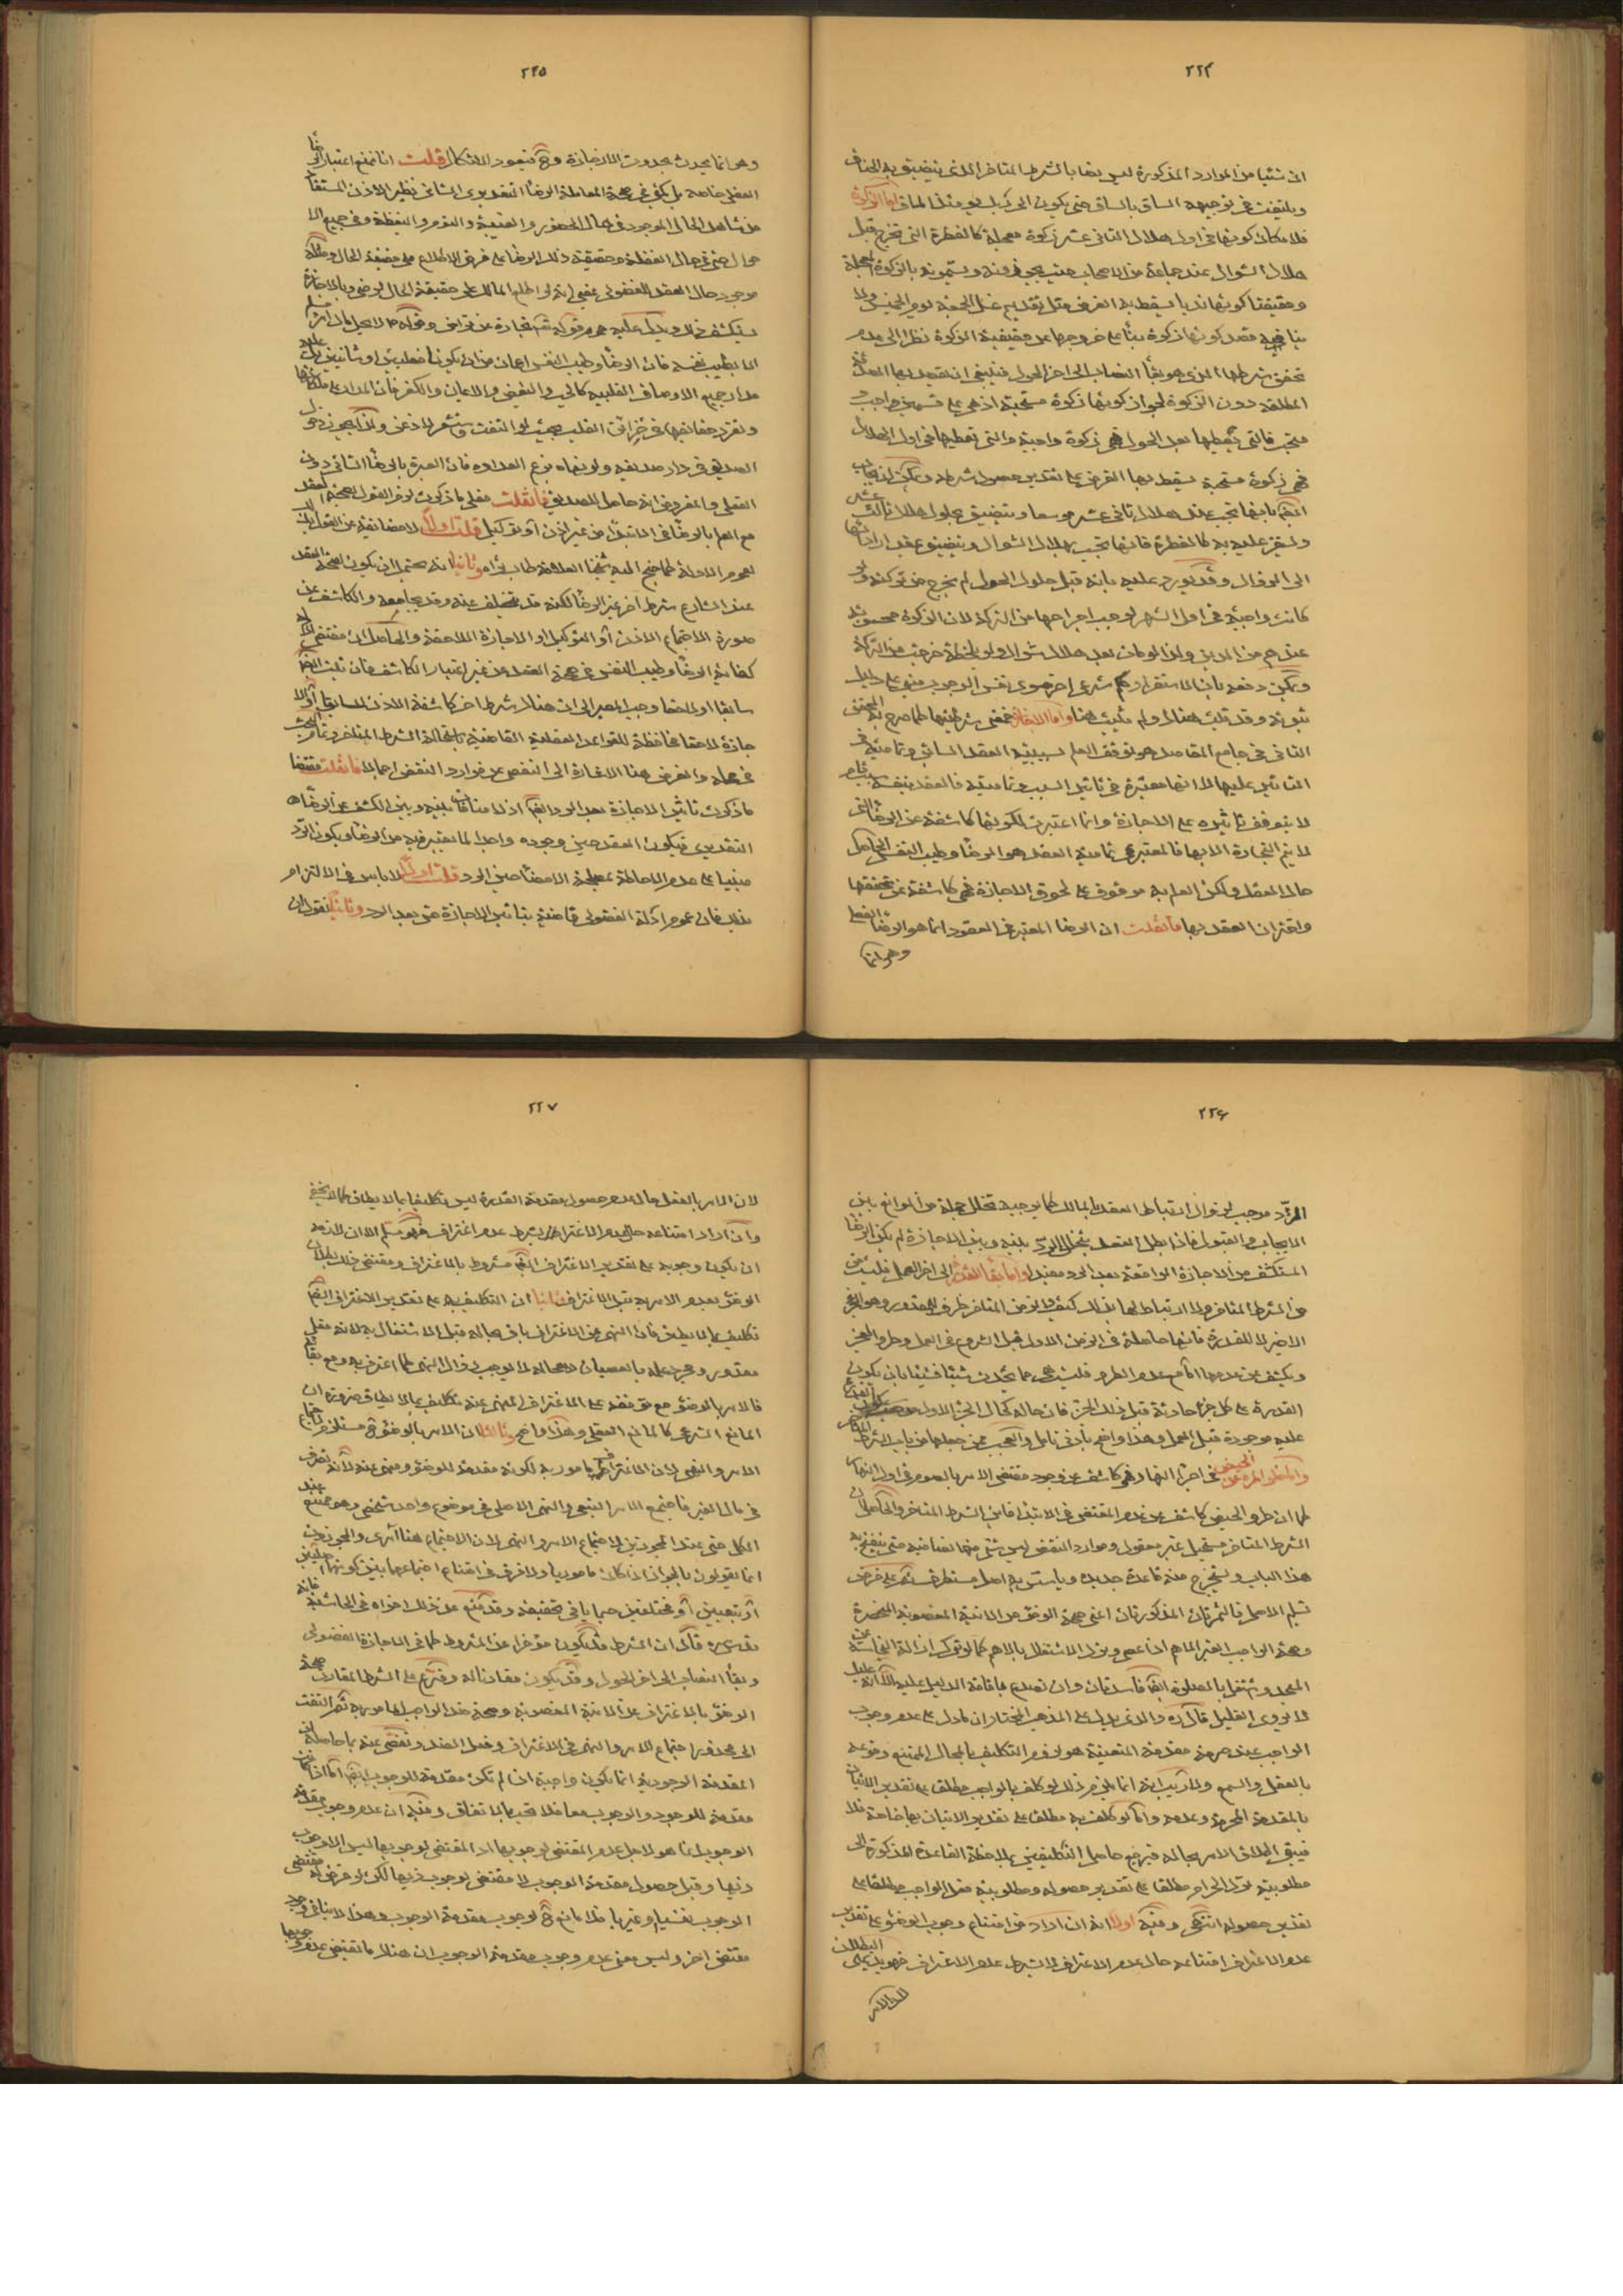 ٢٢٤
ان شيئا من الموارد المذكورة ليس بالشرط المتاخر الذى يتضيق به الخناق
ويلتفت فى توجيهه الساق بالساق حتى يكون الى ربك يومئذ المساق اما الزكوة
فلامكان كونها فى اول هلال الثانى عشر زكوة معجلة كالفطرة التى تخرج قبل
هلال الشوال عند جماعة من الاصحاب حيث يجوزونه ويسمونه بالزكوة المعجلة
وحقيقتها كونها نديا يسقط به الفرض مثل تقديم غسل الجمعة يوم الخميس ولا
ينافيه قصد كونها زكوة بناً على خروجها عن حقيقة الزكوة نظرا الى عدم
تحقق شرطها الذى هو بقأ النصاب الى اخر الحول فينبغى ان يقصد بها الصدقة
المطلقة دون الزكوة لجواز كونها زكوة مستحبة اذ هى على قسمين واجب و
مستحب فالتى تعطيها بعد الحول فهى زكوة واجبة والتى تعطيها فى اول الهلال
فهى زكوة مستحبة يسقط بها الفرض على تقدير حصول شرطه ويمكن ان يجاب
ايضا بانها تجب عند هلال ثانى عشر موسعا ويتضيق بحلول هلال ثالث عشر
كالفطرة فانها تجب بهلال الشوال ويتضيق عند
الى الزوال وقد يورد عليه بانه قبل حلول الحول لم يخرج من تركته ولو
كانت واجبة فى اول الشهر لوجب اخراجها من التركة لان الزكوة
عندهم من الدين ولذا لو مات بعد هلال شوال ولو بلحظة خرجت من التركة
ويمكن دفعه بان الاستقرار حكم شرعى اخر سوى نفس الوجوب مبنى على دليل
ثبوته وقد ثبت هنالك ولم يثبت هنا واما الاجازة فمعنى شرطيتها كما صرح به المحقق
الثانى فى جامع المقاصد هو توقف العلم بسببية العقد السابق وتماميته فى
التاثير عليها لا انها معتبرة فى تاثير السبب وتماميته فالعقد بنفسه سبب تام
لا يتوقف تاثيره على الاجازة وانما اعتبرت لكونها كاشفة عن الرضا التى
لا يتم التجارة الا بها فالمعتبر فى تمامية العقد هو الرضا وطيب النفس الحاصل
حال العقد ولكن العلم به موقوف على لحوق الاجازة فهى كاشفة عن تحققها
واقتران العقد بها فان قلت ان الرضا المعتبر فى العقود انما هو الرضا الفعلى
وهو انما
٢٢٥
وهو انما يحدث بحدوث الاجازة وح فيعود الاشكال قلت انا نمنع اعتبار الرضا
الفعلى خاصة بل يكفى فى صحة المعاملة الرضا التقديرى الشانى نظير الاذن المستفاد
من شاهد الحال الموجود فى حال الحضور والغيبة والنوم واليقظة وفى جميع الا
حوال حتى فى حال الغفلة وحقيقة ذلك الرضا على فرض الاطلاع على حقيقة الحال
موجود حال العقد الفضولى بمعنى انه لو اطلع المالك على حقيقة الحال لرضى وبالاجازة
يستكشف ذلك ويدل عليه عموم قوله تع تجارة عن تراض وقوله ص لا يحل مال امرء مسلم
الا بطيب نفسه فان الرضا وطيب النفس اعمان من ان يكونا فعليين او شانيين بل عليه
مدار جميع الاوصاف القلبية كالحب والبغض والايمان والكفر فان المدار على
وتقرر حقائقها فى خزائن القلب بحيث لو التفت وشعر لاذعن ولذا يجوز دخول
الصديق فى دار صديقه ولو نهاه بزعم العداوه فان العبرة بالرضا الشانى دون
الفعلى والمفروض انه حاصل للصديق فان قلت فعلى ما ذكرت لزم القول بصحة العقد
مع العلم بالرضا فى الابتدا من غير اذن او توكيل قلت اولا لا مضايقة عن القول بذلك
لعموم الادلة كما جنح اليه شيخنا العلامة طاب ثراه وثانيا انه يحتمل ان يكون لصحة العقد
عند الشارع شرط اخر غير الرضا لكنه قد يتخلف عنه وقد يجامعه والكاشف عن
صورة الاجتماع الاذن او التوكيل او الاجازة اللاحقة والحاصل ان مقتضى الادلة
كفاية الرضا وطيب النفس فى صحة العقد من غير اعتبار الكاشف فان ثبت ايضا
سابقا او لاحقا وجب المصير الى ان هنالك شرطا اخر كاشفه الاذن السابق او الا
جازة لاحقا محافظة للقواعد العقلية القاضية باستحالة الشرط المتاخر وتمام البحث
فى محله والغرض هنا الاشارة الى التفصى عن موارد النقض اجمالا فان قلت مقتضى
ما ذكرت تاثير الاجازة بعد الرد ايضا اذ لا منافات بينه وبين الكشف عن الرضا
التقديرى فيكون العقد حين وجوده واجدا لما يعتبر فيه من الرضا ويكون الرد
مبنيا على عدم الاحاطة بمصلحة الامضا حين الرد قلت اولا لا باس فى الالتزام
بذلك فان عموم ادلة الفضولى قاضية بتاثير الاجازة حتى بعد الرد وثانيا نقول ان
٢٢٦
الرد موجب لزوال ارتباط العقد بالمالك كما يوجبه تخلل جملة من الموانع بين
الايجاب والقبول فاذا بطل العقد بتخلل الرد بينه وبين الاجازة لم يكن الرضا
المستكشف من الاجازة الواقعة بعد الرد مفيدا واما بقأ القدرة الى اخر العمل فليست من
من الشرط المتاخر ولا ارتباط لها بذلك كيف والزمن المتاخر ظرف للمقدور وهو الجزء
الاخير لا للقدرة فانها حاصلة فى الزمن الاول قبل الشروع فى العمل وطرو العجز
ويكشف عن عدمها اما مع عدم الطرو فليست هى مما يحدث شيئا فشيئا بان يكون
القدرة على كل جزء حادثة قبل ذلك الجزء فان حاله كحال الجزء الاول
عليه موجودة قبل العمل وهذا واضح بادنى تامل والعجب ممن جعلها من باب الشرط المتاخر
واما خلو المرءة عن الحيض فى اجزاء النهار فهى كاشف عن وجود مقتضى الامر بالصوم فى اول النهار
كما ان طرو الحيض كاشف عن عدم المقتضى فى الابتدا فاين الشرط المتاخر والحاصل ان
الشرط المتاخر مستحيل غير معقول وموارد النقض ليس شئ منها نقضا فيه حتى ينفتح به
هذا الباب ويستخرج منه قاعدة جديدة وباب به اصل مستطرف ثم على فرض
تسليم الاصل فالثمرتان المذكورتان اعنى صحة الوضؤ من الانية المغصوبة المنحصرة
وصحة الواجب الغير الاهم اذا عصى وترك الاشتغال بالاهم كما لو ترك ازالة النجاسة عن
المسجد واشتغل بالصلوة ايضا فاسدتان وان تصدى باقامة الدليل عليه
لا يروى الغليل قال ره والذى يدل على المذهب المختار ان ما دل على عدم وجوب
الواجب عند حرمة مقدمته المتعينة هو لزوم التكليف بالمحال الممتنع وقوعه
بالعقل والسمع ولا ريب انه انما يلزم ذلك لو كلف بالواجب مطلقا على تقدير الاتيان
بالمقدمة المحرمة وعدمه واما لو كلف به مطلقا على تقدير الاتيان بها خاصة فلا
فيبقى اطلاق الامر بحاله فيرجع حاصل التكليفين بملاحظة القاعدة المذكورة الى
مطلوبية ترك الحرام مطلقا على تقدير حصوله ومطلوبية فعل الواجب مطلقا على
تقدير حصوله انتهى وفيه اولا انه ان اراد من امتناع وجوب الوضؤ على تقدير
عدم الاغتراف امتناعه حال عدم الاغتراف لا بشرط عدم الاغتراف فهو بديهى البطلان
لان الامر
٢٢٧
لان الامر بالفعل حال عدم حصول مقدمته القدرة ليس تكليفا بما لا يطاق كما لا يخفى
وان اراد امتناعه حال عدم الاغتراف بشرط عدم اغتراف فهو مسلم الا ان لازمه
ان يكون وجوبه على تقدير الاغتراف ايضا مشروط بالاغتراف ومقتضى ذلك بطلان
الوضؤ بعدم الامر به قبل الاغتراف وثانيا ان التكليف به على تقدير الاغتراف ايضا
تكليف بما لا يطيق فان النهى عن الاغتراف باق بحاله قبل الاشتغال به لانه فعل
مقدور ومجرد علمه بالعصيان لا يوجب زوال النهى كما اعترف به ومع بقاء
فالامر بالوضؤ مع توقفه على الاغتراف المنهى عنه تكليف بما لا يطاق ضرورة ان
المانع الشرعى كالمانع العقلى وهذا واضح وثالثا ان الامر بالوضؤ ح مستلزم لاجتماع
الامر والنهى لان الاغتراف ح مامور به لكونه مقدمة للوضؤ ومنهى عنه لانه تصرف
فى مال الغير فاجتمع الامر التبعى والنهى الاصلى فى موضوع واحد شخصى وهو ممتنع عند
الكل حتى عند المجوزين لاجتماع الامر والنهى لان الاجتماع هنا امرى والمجوزون
انما يقولون بالجواز اذا كان ماموريا ولا فرق فى امتناع اجتماعهما بين كونهما اصليين
او تبعيين او مختلفين حسبما ياتى تحقيقه وقد منع عن ذلك اخواه فى الحاشية فانه
قدس سره قال ان الشرط قد يكون مؤخرا عن المشروط كما فى الاجازة الفضولى
وبقأ النصاب الى اخر الحول وقد يكون مقارنا له وفرع على الشرط المقارن صحة
الوضؤ بالاغتراف من الانية المغصوبة وصحة ضد الواجب المامور به ثم التفت
الى محذور اجتماع الامر والنهى فى الاغتراف وفعل الضد وتفصى عنه بما حاصله ان
المقدمة الوجودية انما يكون واجبة اذا لم تكن مقدمة للوجوب ايضا اما اذا كانت
مقدمة للوجود والوجوب معا فلا تجب بالاتفاق وفيه ان عدم وجوب مقدمة
الوجوب انما هو لاجل عدم المقتضى لوجوبها اذ المقتضى لوجوبها ليس الا وجوب
ذيها وقبل حصول مقدمة الوجوب لا مقتضى لوجوب ذيها لكن لو فرض له مقتضى
الوجوب نفسيا وغيريا فلا مانع ح لوجوب مقدمة الوجوب وهذا لا ينافى وجود
مقتضى اخر وليس معنى عدم وجوب مقدمة الوجوب ان هنالك ما يقتضى عدم وجوبها